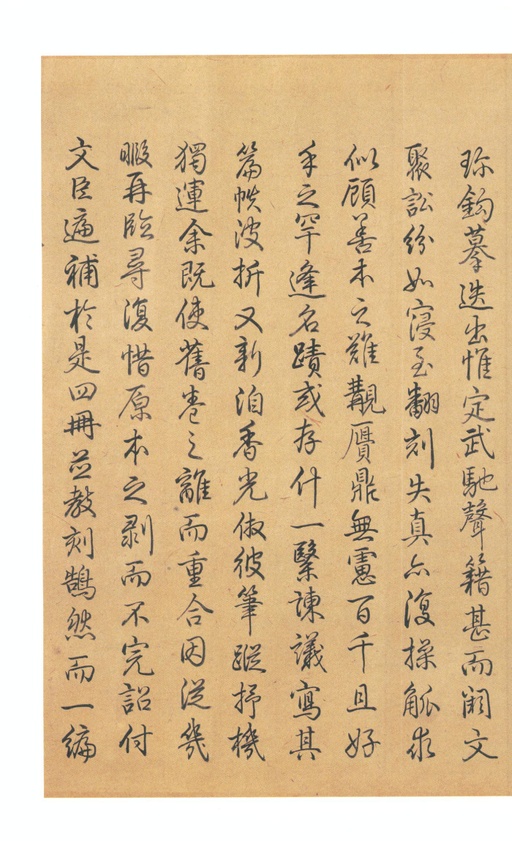 珍鉤摹迭出惟定武馳聲籍甚而闕文
聚訟紛如寖至翻刻失真亦復操觚求
似顧善本之難覯贋鼎無慮百千且好
手之罕逢名蹟或存什一繄諫議寫其
篇帙波折又新洎香光倣彼筆蹤抒機
獨運余既使舊卷之離而重合因從幾
暇再臨尋復惜原本之剥而不完詔付
文臣逓補於是四冊並教刻鵠然而一編